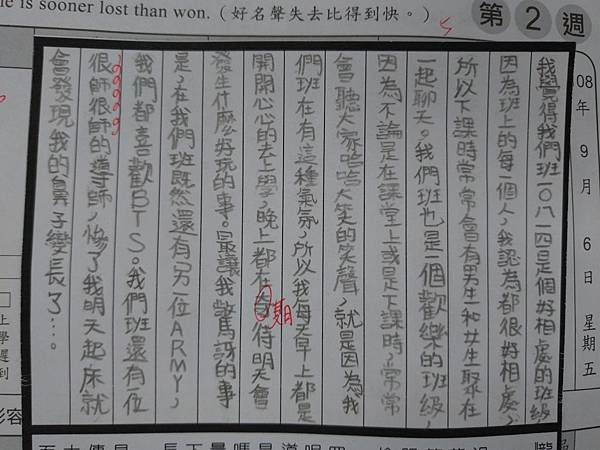 is sooner lost than won.（好名聲失去比得到快。）
第2週
08年9月6日 星期五
我覺得我們班一〇八一四是個好相處的班級
因為班上的每一個人，我認為都很好相處，
所以下課時常常會有男生和女生聚在
一起聊天。我們班也是一個歡樂的班級，
因為不論是在課堂上或是下課時，常常
會聽大家哈哈大笑的笑聲，就是因為我
們班在有這種氣氛，所以我每天早上都是
開開心心的去上學，晚上都在期待明天會
發生什麼好玩的事。最讓我驚訝的事
是，在我們班既然還有另一位ARMY，
我們都喜歡BTS。我們班還有一位
很師很師的導師，慘了我明天起床就
會發現我的鼻子變長了…。